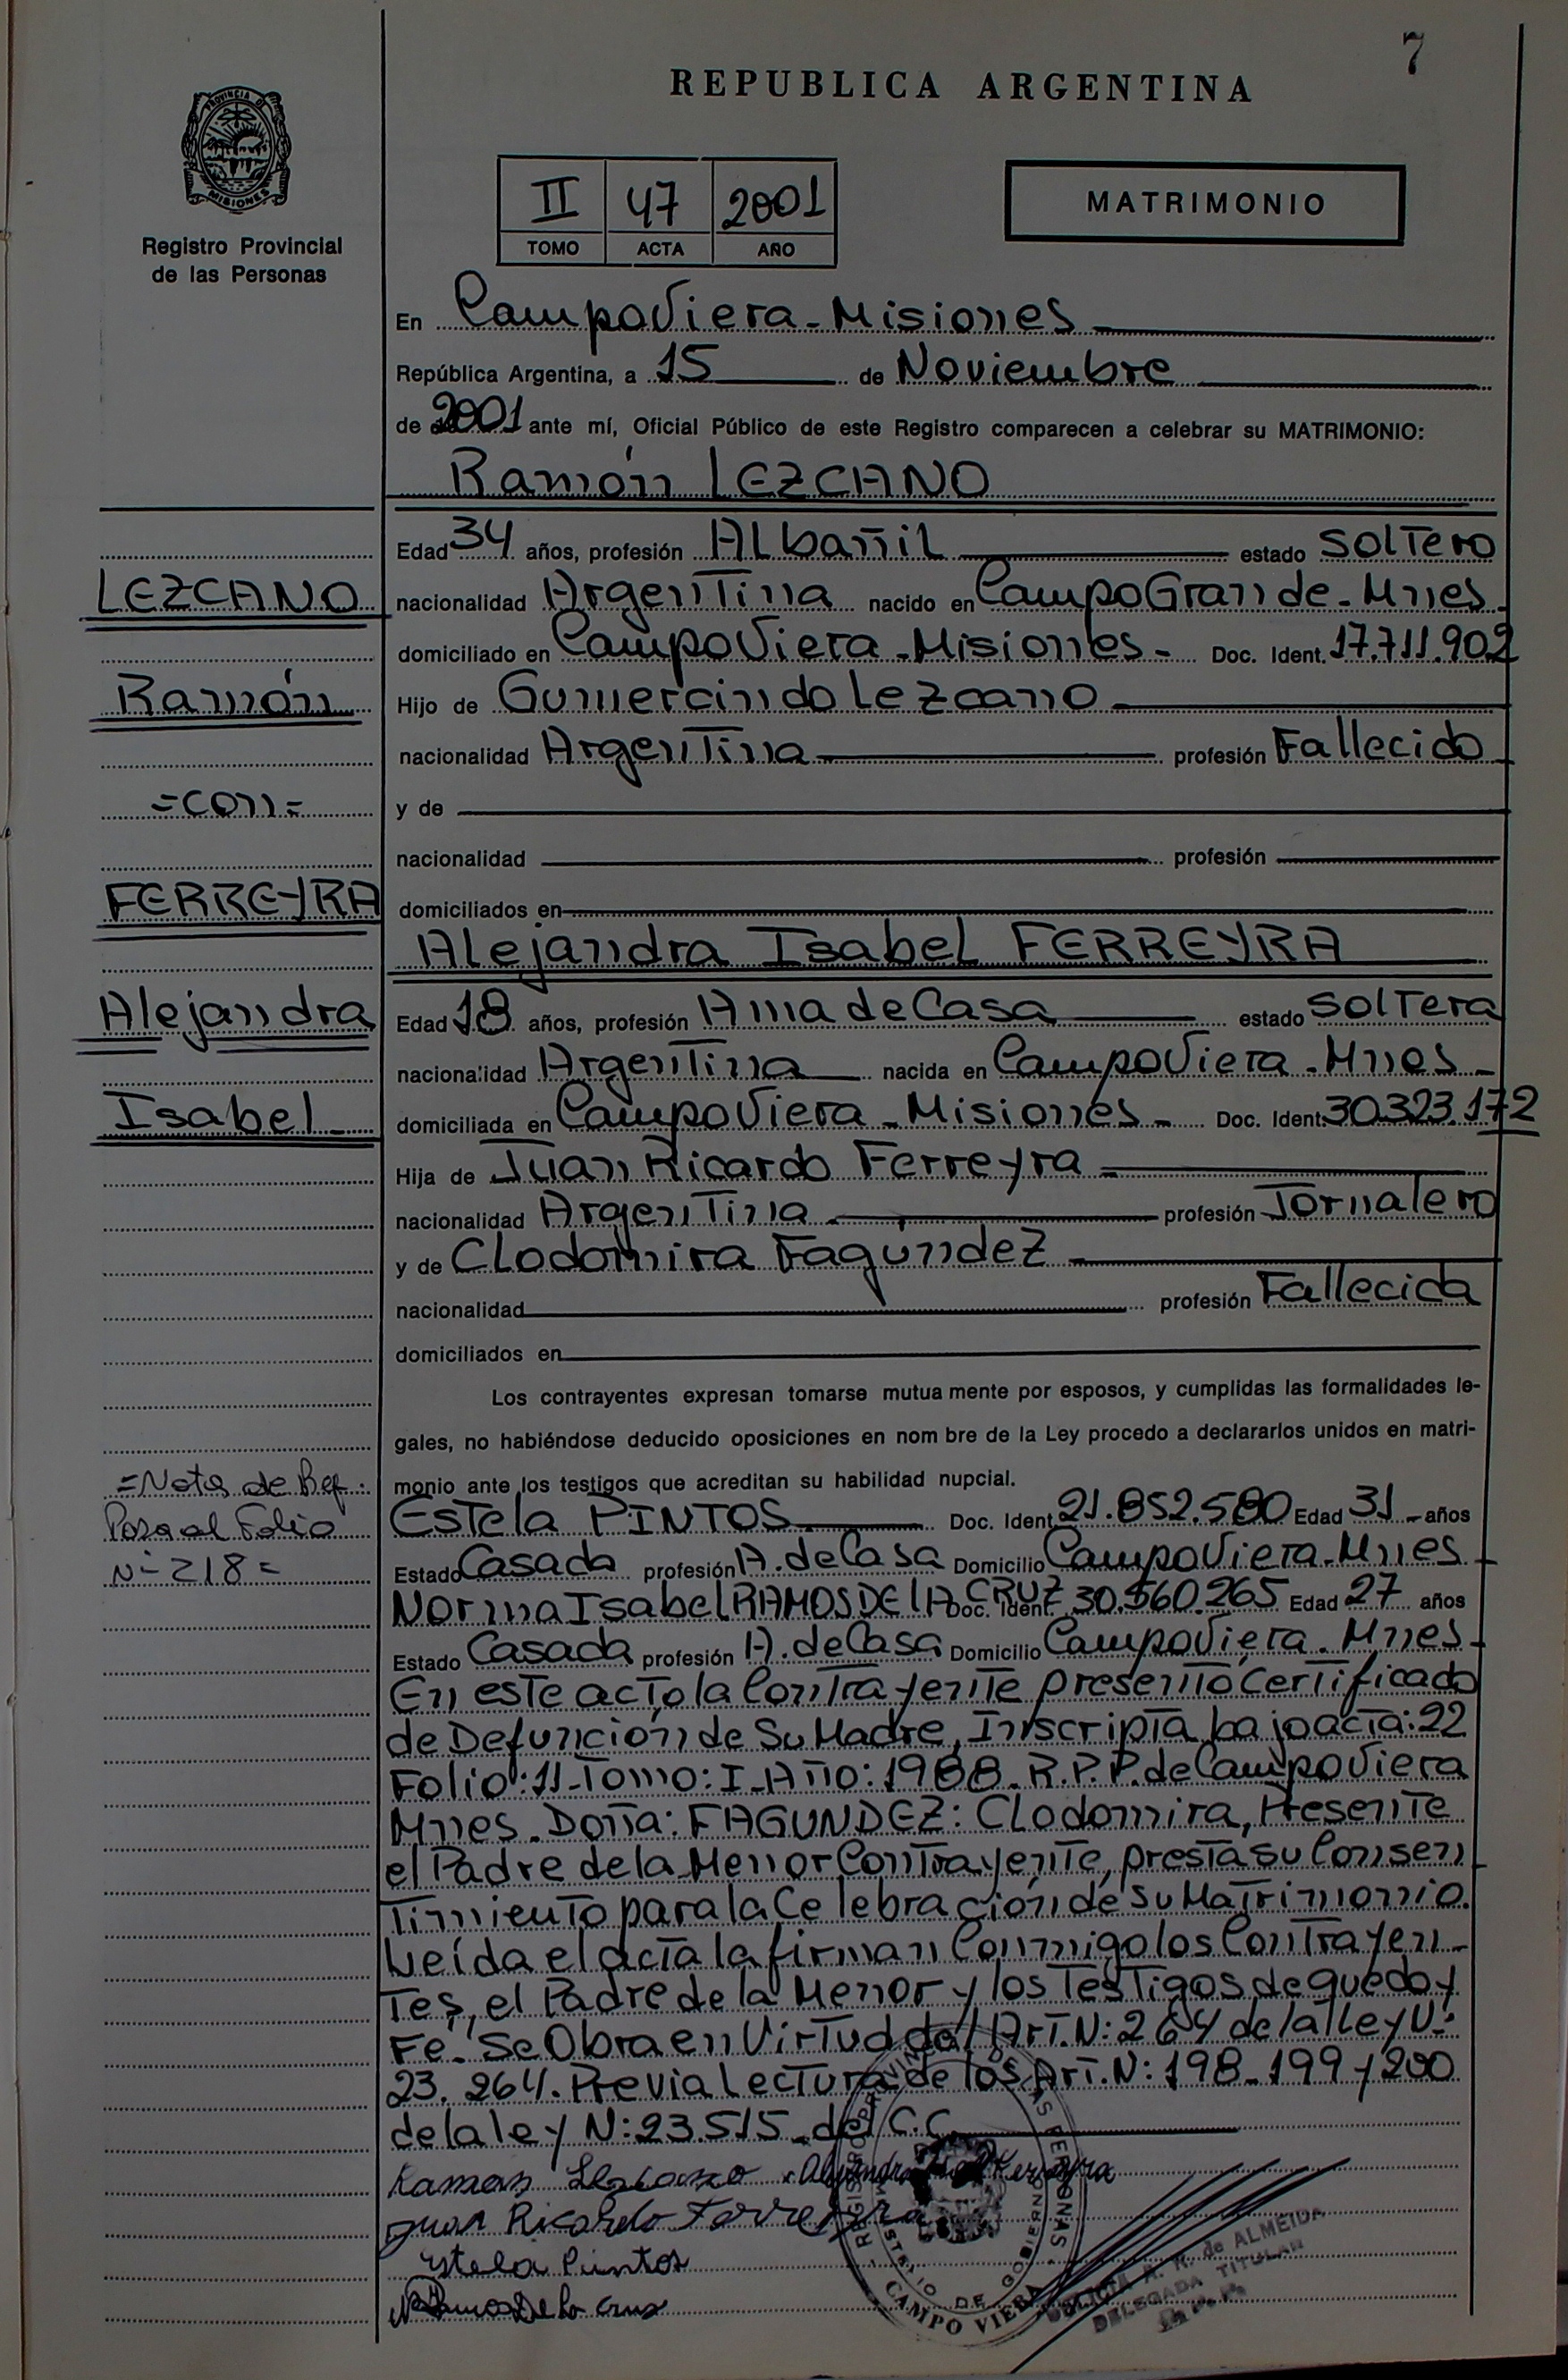 7
REPUBLICA ARGENTINA
PROVINCIA DE
MISIONES
Registro Provincial
de las Personas
II 47 2001
TOMO ACTA AÑO
MATRIMONIO
En Campo Viera - Misiones
República Argentina, a 15 de Noviembre
de 2001 ante mí, Oficial Público de este Registro comparecen a celebrar su MATRIMONIO:
Ramón LEZCANO
Edad 34 años, profesión Albañil estado Soltero
LEZCANO
nacionalidad Argentina nacido en Campo Grande - Mnes -
domiciliado en Campo Viera - Misiones - Doc. Ident. 17.711.902
Ramón
Hijo de Gumercindo Lezcano
nacionalidad Argentina profesión Fallecido
=con=
y de
nacionalidad profesión
FERREYRA
domiciliados en
Alejandra Isabel FERREYRA
Alejandra
Edad 18 años, profesión Ama de Casa estado Soltera
nacionalidad Argentina nacida en Campo Viera - Mnes -
Isabel
domiciliada en Campo Viera - Misiones - Doc. Ident. 30.323.172
Hija de Juan Ricardo Ferreyra
nacionalidad Argentina profesión Jornalero
y de Clodomira Fagúndez
nacionalidad profesión Fallecida
domiciliados en
Los contrayentes expresan tomarse mutua mente por esposos, y cumplidas las formalidades le-
gales, no habiéndose deducido oposiciones en nom bre de la Ley procedo a declararlos unidos en matri-
monio ante los testigos que acreditan su habilidad nupcial.
=Nota de Ref.
Pasa al Folio
Nº 218=
Estela PINTOS Doc. Ident. 21.852.580 Edad 31 años
Estado Casada profesión A. de Casa Domicilio Campo Viera - Mnes -
Norma Isabel RAMOS DE LA CRUZ Doc. Ident. 30.560.265 Edad 27 años
Estado Casada profesión A. de Casa Domicilio Campo Viera - Mnes -
En este acto, la Contrayente presentó Certificado
de Defunción de Su Madre, Inscripta bajo acta: 22
Folio: 11 - Tomo: I - Año: 1988 - R.P.P. de Campo Viera
Mnes. Doña: FAGUNDEZ: Clodomira, Presente
el Padre de la Menor Contrayente, presta su Consen
timiento para la Celebración de su Matrimonio.
Leída el acta la firman Conmigo los Contrayen-
tes, el Padre de la Menor y los Testigos de que doy
Fe. Se Obra en Virtud del Art. N: 264 de la Ley N:
23.264. Previa Lectura de los Art. N: 198-199 y 200
de la ley N: 23.515 - del C.C.
Ramon Lezcano Alejandra Ferreyra
Juan Ricardo Ferreyra
Estela Pintos
N Ramos De la Cruz
REGISTRO PROVINCIAL DE LAS PERSONAS
MINISTERIO DE GOBIERNO
CAMPO VIERA
de ALMEIDA
DELEGADA TITULAR